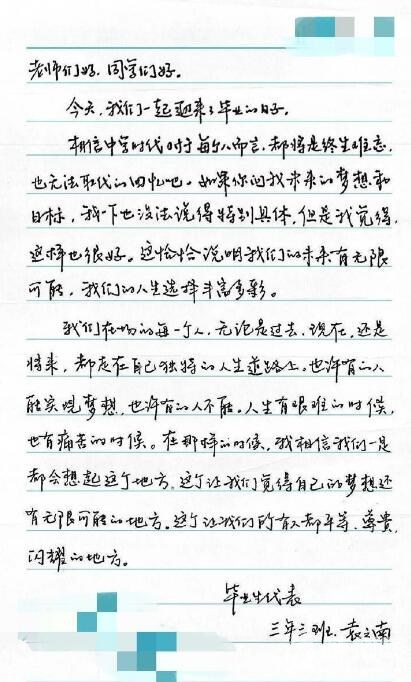 老师们好，同学们好。
今天，我们一起迎来了毕业的日子。
相信中学时代对于每个人而言，都将是终生难忘，
也无法取代的回忆吧。如果你问我未来的梦想和
目标，我一下也没法说得特别具体，但是我觉得，
这样也很好。这恰恰说明我们的未来有无限
可能，我们的人生选择丰富多彩。
我们在场的每一个人，无论是过去、现在、还是
将来，都走在自己独特的人生道路上。也许有的人
能实现梦想，也许有的人不能。人生有艰难的时候，
也有痛苦的时候。在那样的时候，我相信我们一定
都会想起这个地方。这个让我们觉得自己的梦想还
有无限可能的地方。这个让我们所有人都平等、尊贵、
闪耀的地方。
毕业生代表
三年三班 袁之南